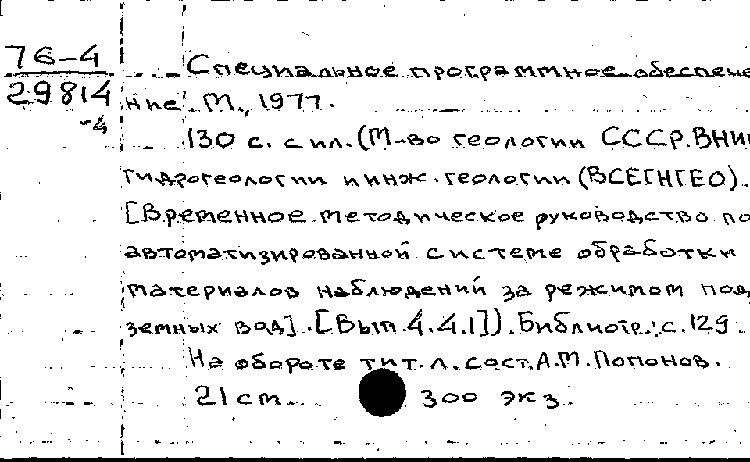 76-4
29814
-4
Специальное программное обеспече
ние. М., 1977.
130 с. с ил. (М-во геологии СССР. ВНИИ
гидрогеологии и инж. геологии (ВСЕГИНГЕО).
[Временное методическое руководство по
автоматизированной системе обработки
материалов наблюдений за режимом под
земных вод]. [Вып. 4.4.1]). Библиогр.: с. 129.
На обороте тит. л. сост. А.М. Попонов.
21 см. 300 экз.